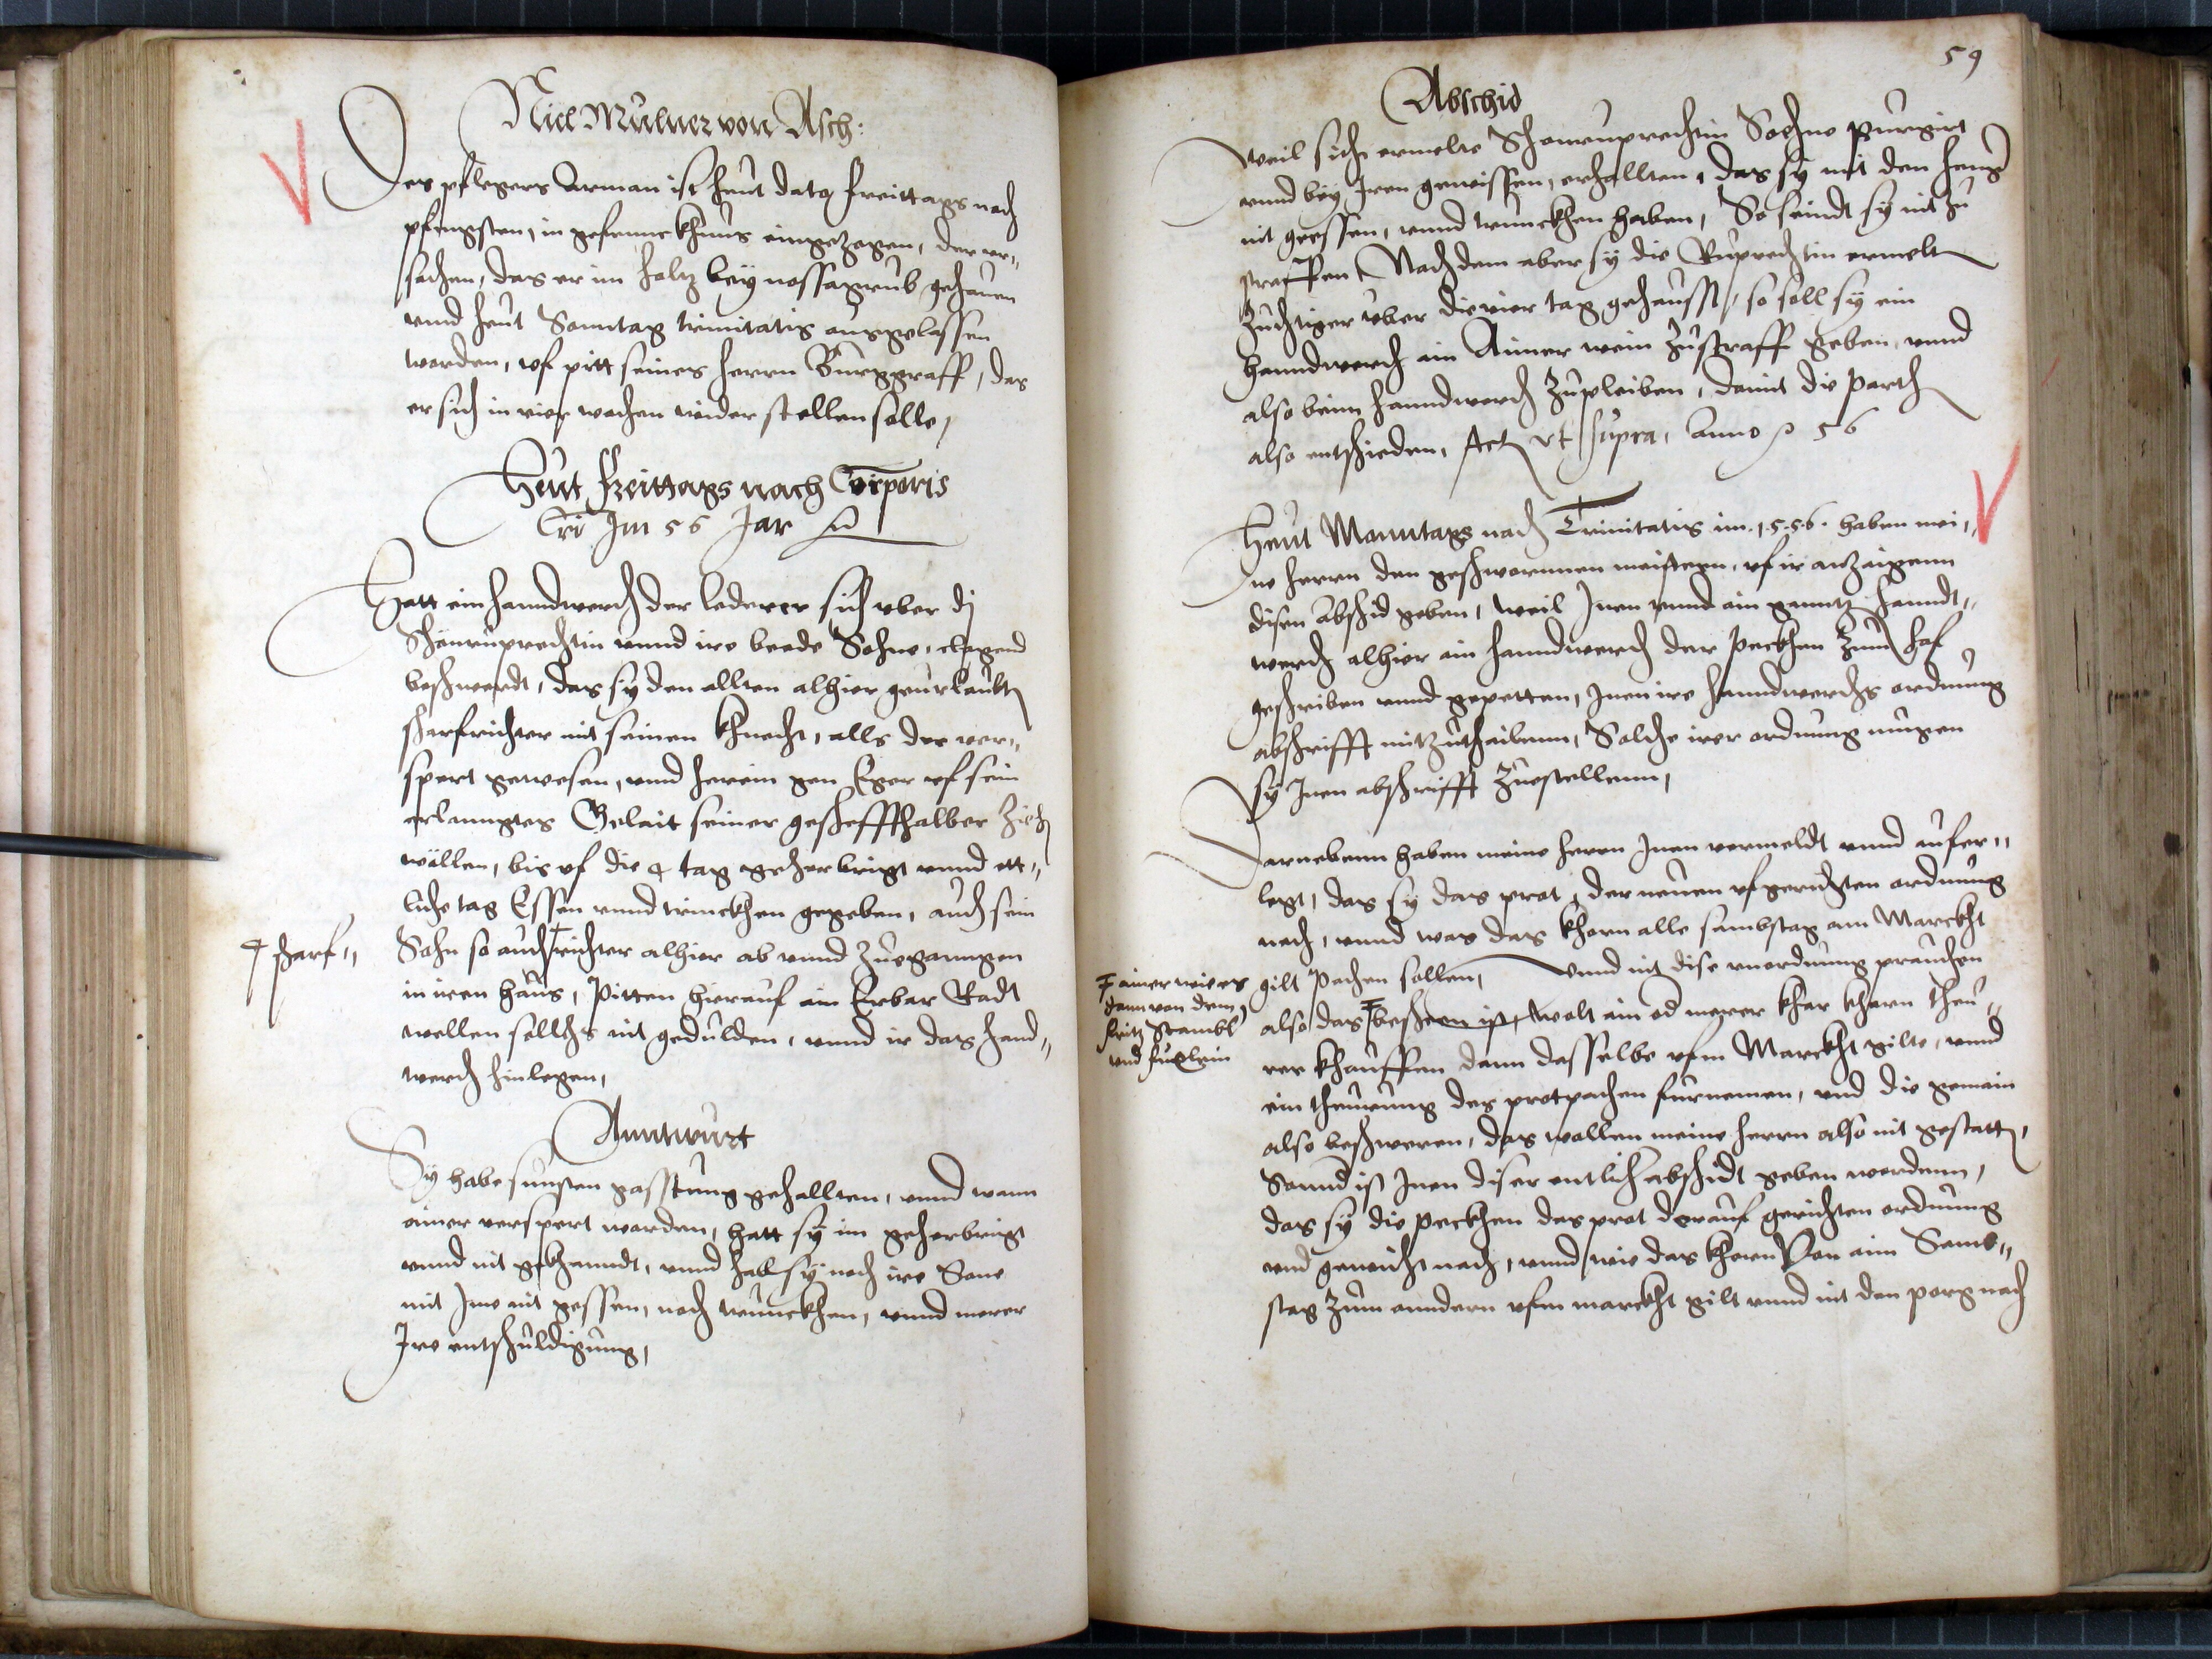 Nicl Mulner von Asch:
Des pflegers Arman ist heut dato freittags nach
pfingsten, in gefennckhnus eingezogen, der ur„
sachen, das er im holtz bey nossagrub gehauen
vnnd heut Sonntag trinitatis ausgelassen
worden, vf pitt seines herrn Burggraff, das
er sich in vier wochen wider stellen solle,
Heut freittags nach Corporis
Cri Im 56 Jar
Hatt ein hanndwerch der lederer sich vber di
Schönruprechtin vnnd ire beede Sohne, clagend
beschwerdt, das sy den allten alhier geurlaubten
scharfrichter mit seinen khnecht, alls der ver„
spert gewesen, vnnd herein gen Eger vf sein
erlanngtes Gelait seiner gescheffthalber ziehen
wöllen, bis vf die 4 tag geherbrigt vnnd ett„
liche tag Essen vnnd trinckhen gegeben, auch sein
Sohn so auch richter alhier ab vnnd zuegangen
scharf„
in iren haus, Pitten hierauf ain Erbar Radt
wellen sollchs nit gedulden, vnnd ir das hand„
werch hinlegen,
Anntwurt
Sy habe sunsten gasstung gehallten, vnnd wann
ainer verspert worden, hatt sy im geherbrigt
vnnd nit gekhanndt, vnnd hab sy noch ire Sone
mit Ime nit gessen, noch trunckhen, vnnd merer
Ire entschuldigung,
59
Abschid
Weil sich ermelte Schonruprechtin Sohne purgirt
vnnd bey Iren gewissen, erhallten, das sy mit den heng
nit geessen, vnnd trunckhen haben, So seindt sy nit zu
straffen, Nachdem aber sy die Ruprechtin ermelten
Zuchtiger vber die vier tag gehausst, so soll sy ein
hanndwerch ain Aimer wein zustraff geben, vnnd
also beim hanndwerch zupleiben, damit die parth
also entschieden, Act vt supra, Anno 56
Heut Monntags nach Trinitatis im 1556. haben mei„
ne herrn den geschwornnen maistern, vf ir anzaigenn
disen abschid geben, Weil Inen vnnd ain ganntz hanndt„
werch alhier ain hanndwerch der peckhen zum hof
geschriben vnnd gepetten, Inen ire hanndwerchs ordnung
abschrifft mitzuthailenn, Solche irer ordnung mugen
sy Inen abschrifft zuestellenn,
Darnebenn haben meine herrn Inen vermeldt vnnd aufer„
legt, das sy das prot, der neuen vfgerichten ordnung
nach, vnnd was das khorn alle sambstag am Marckht
gilt Pachen sollen, Vnnd nit dise vnordnung prauchen
ainer wie es
dann von dem
fritz Stambl
vnd fuxlein
also das beschen ist, wolt ain od merer khar khorn theu„
rer khauffen dann dasselbe vfm Marckht gilte, vnnd
ein theurung des protpachen furnemen, vnd die gemain
also beschweren, das wollen meine herrn also nit gestatten,
Sonnd ist Inen diser entlich abschidt geben wordenn,
das sy die peckhen das prot darauf gerichten ordnung
vnd gewicht nach, vnnd wie das khorn Von aim Samb„
stag zum anndern vfm marckht gilt vnnd nit den porg nach